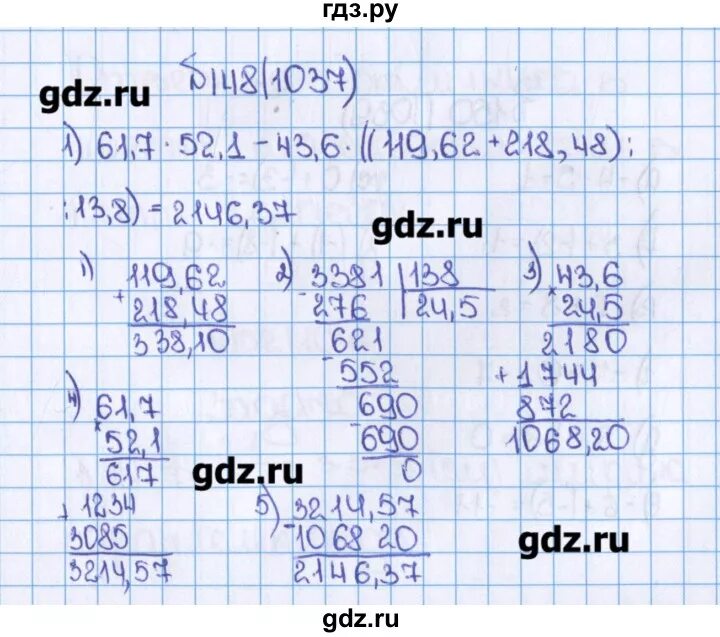 гдз.ру
№148(1037)
gdz.ru
1) 61,7 · 52,1 - 43,6 · ((119,62 + 218,48) :
: 13,8) = 2146,37
gdz.ru
1) 119,62
+ 218,48
338,10
2) 3381 | 138
- 276 | 24,5
621
- 552
690
- 690
0
3) 43,6
× 24,5
2180
+ 1744
872
1068,20
4) 61,7
× 52,1
617
+ 1234
3085
3214,57
gdz.ru
5) 3214,57
- 1068 20
2146,37
gdz.ru
gdz.ru